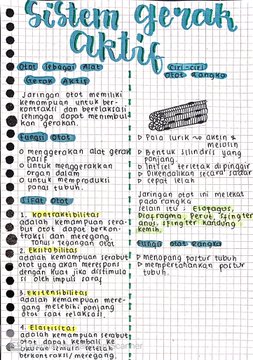 Sistem gerak
aktif
Otot Sebagai Alat
Gerak Aktif
Jaringan otot memiliki
kemampuan untuk ber-
kontraksi dan berelaksasi
sehingga dapat menimbul
kan gerakan.
Fungsi Otot
o menggerakan alat gerak
pasif
o untuk menggerakkan
organ dalam
o untuk memproduksi
panas tubuh.
Sifat Otot
1. Kontraksibilitas
adalah kemampuan sera-
but otot dapat berkon-
traksi dan meregang.
tanus tegangan otot
2. Eksitabilitas
adalah kemampuan serabut
otot yang akan merespons
dengan kuat jika distimula
si oleh impuls saraf
3. Ekstensibilitas
adalah kemampuan mere-
gang melebihi panjang
otot saat relaksasi.
4. Elastisitas
adalah kemampuan serabut
otot dapat kembali ke
ukuran semula setelah
berkontraksi/meregang.
Ciri-ciri
Otot Rangka
▷ Pola lurik → aktin &
miosin
▷ Bentuk silindris yang
panjang.
▷ Inti sel terletak dipinggir
▷ Dikendalikan secara sadar
▷ cepat lelah
Jaringan otot ini melekat
pada rangka
selain itu : Esofagus,
Diafragma, Perut, sfingter
anus, sfingter kandung
kemih.
Fungsi otot rangka
▷ menopang postur tubuh
▷ mempertahankan postur
tubuh.